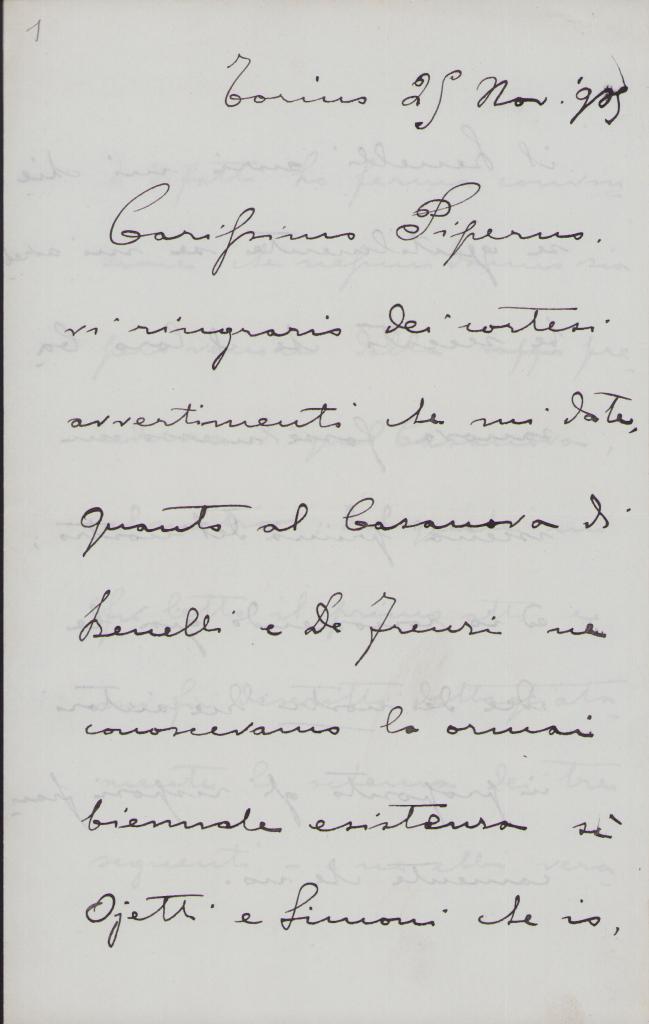 1
Torino 25 Nov. 905
Carissimo Piperno.
vi ringrazio dei cortesi
avvertimenti che mi date,
quanto al Casanova di
Benelli e De Frenzi ne
conoscevamo la ormai
biennale esistenza sì
Ojetti e Simoni che io,